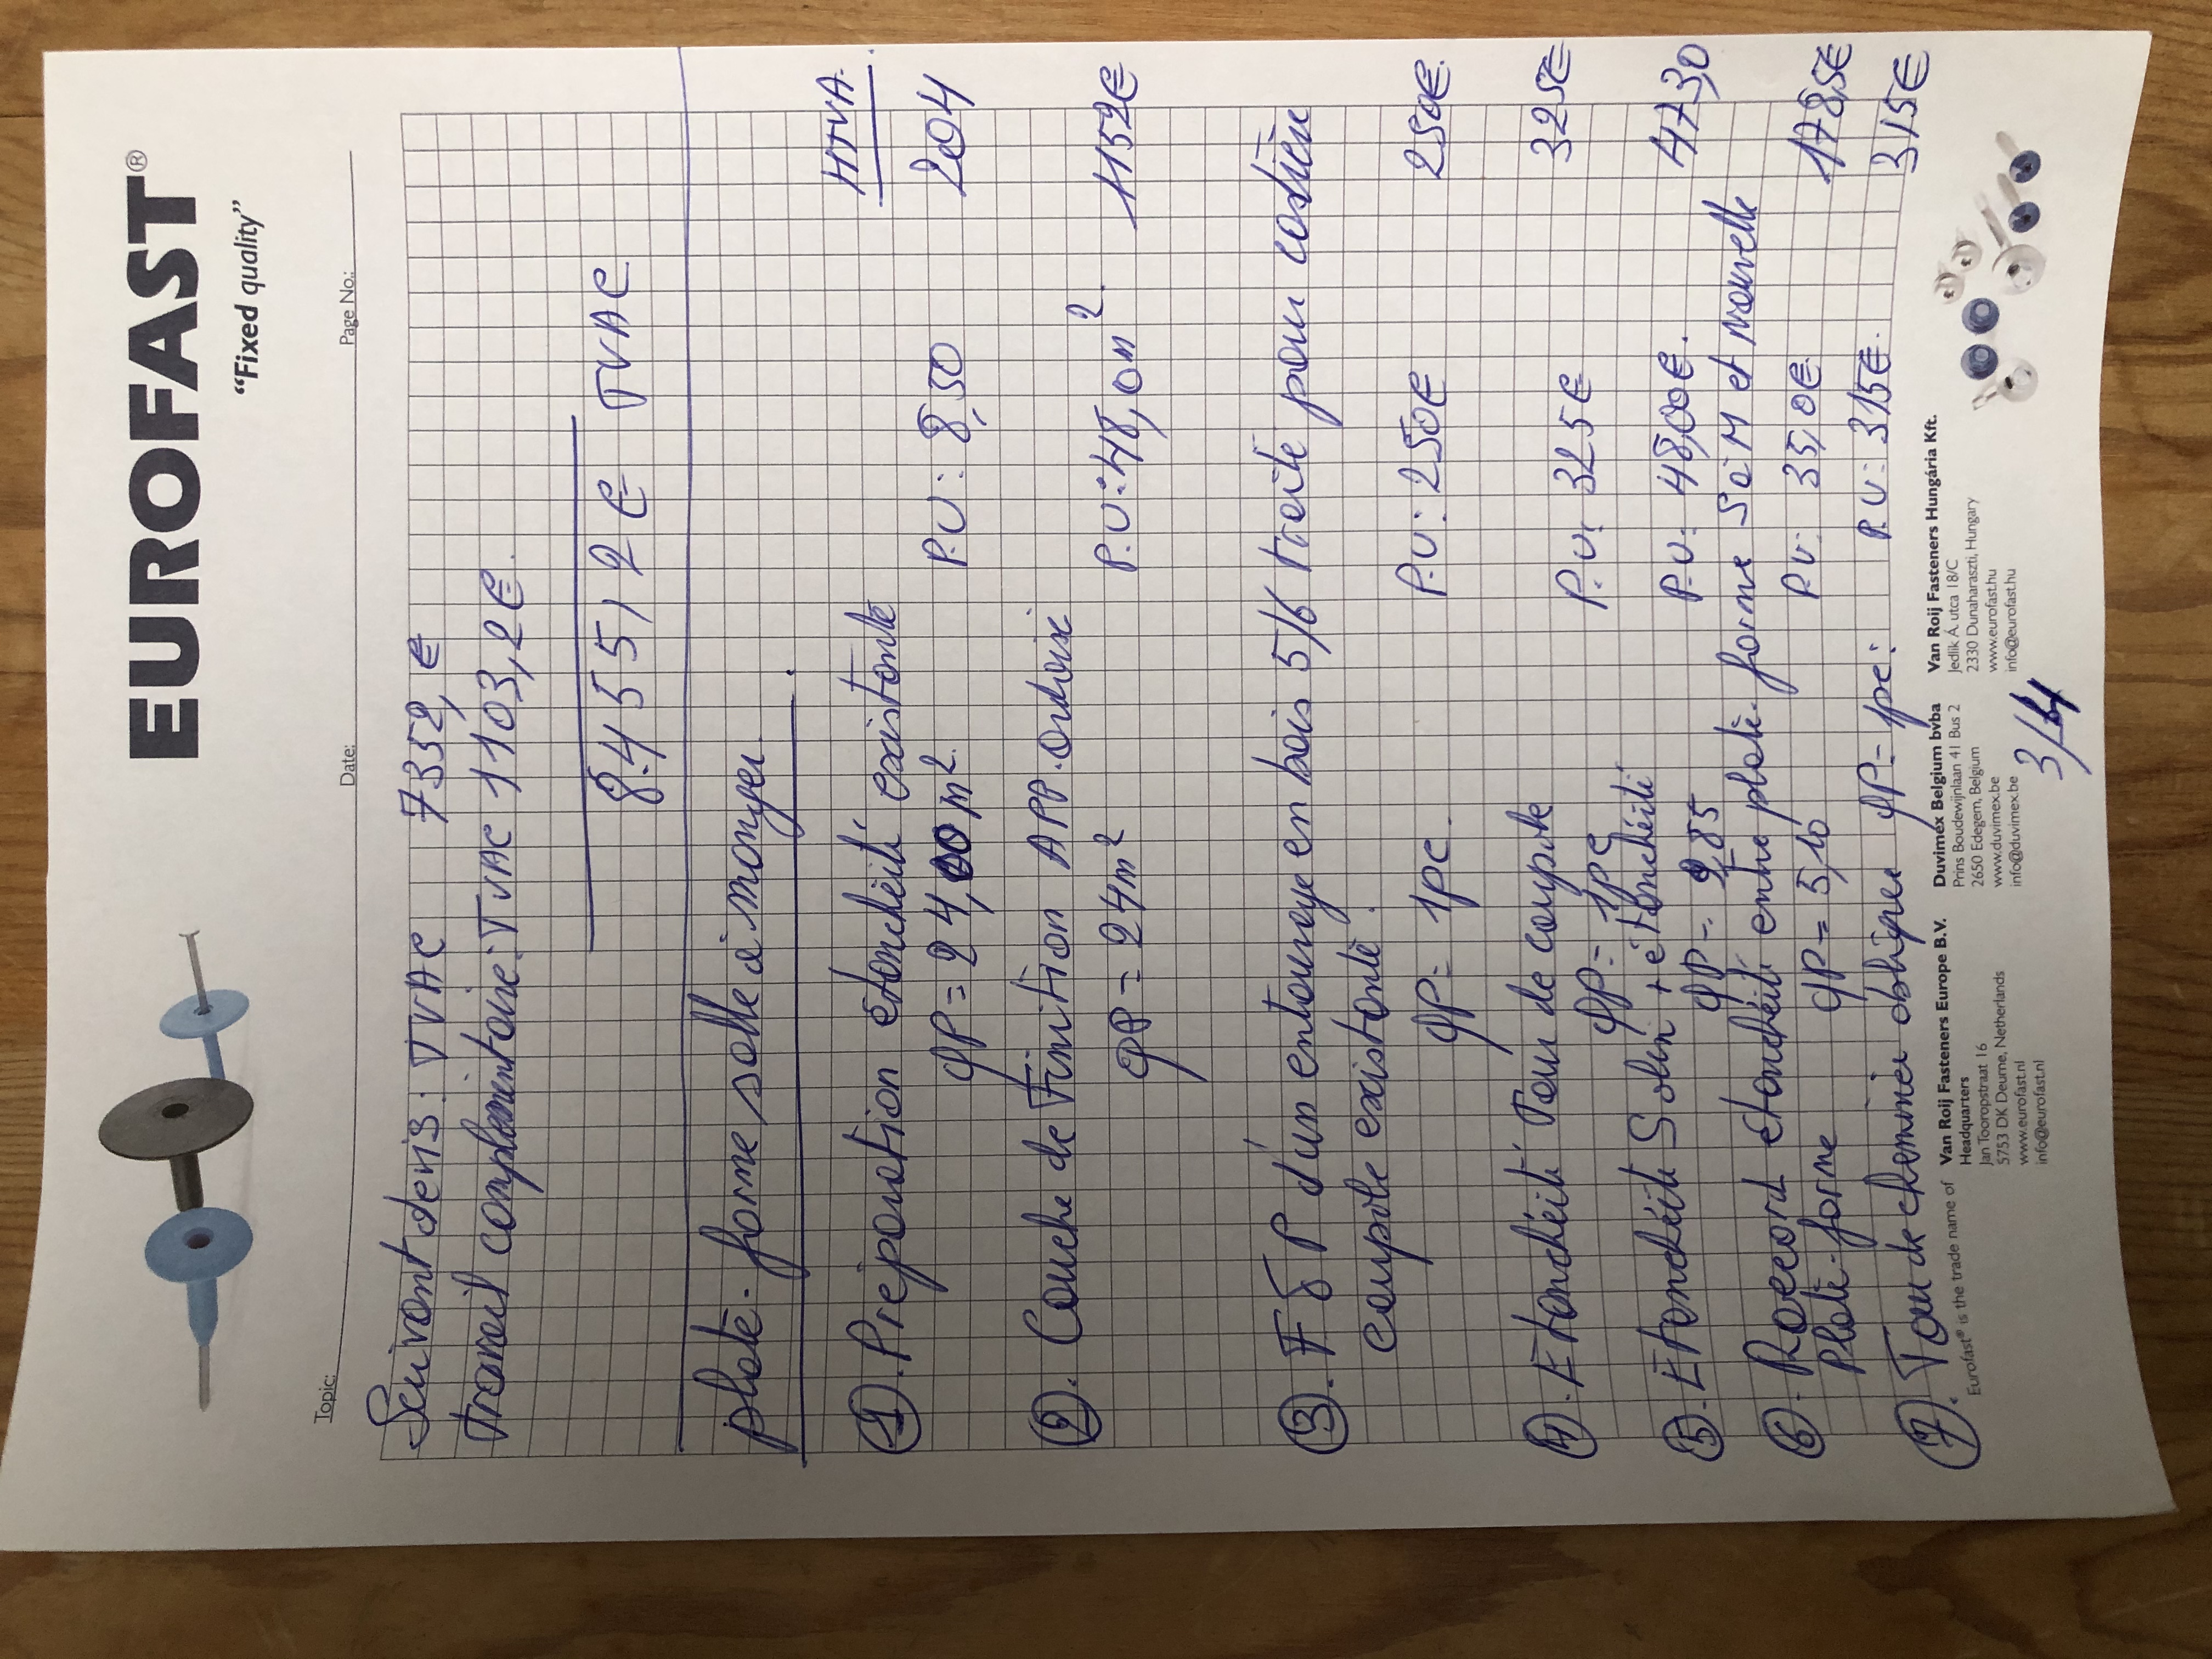 EUROFAST®
“Fixed quality”
Topic:
Date:
Page No.:
Suivant devis: TVAC 7352,€
Travail complementaire: TVAC 1103,2€.
8.455,2€ TVAC
plate-forme salle à manger.
HTVA.
① Préparation etanchéité existante
QP = 24,00 m². P.U: 8,50 204
② Couche de Finition APP. ardoise
QP = 24m² P.U: 48,0 m². 1152€
③ F&P d'un entourage en bois 5/6 traité pour costière
coupole existante.
QP= 1pc. P.U: 250€ 250€.
④ Etanchéité Tour de coupole
QP= 1pc P.U: 325€ 325€
⑤ Etanchéité Solin + étanchéité
QP= 9,85 P.U: 48,00€. 473,0
⑥ Raccord étanchéité entre plate-forme SàM et nouvelle
plate-forme QP= 5,10 P.U: 35,0€. 178,5€
⑦ Tour de cheminée obliques QP= 1pc: P.U: 315€. 315€
Eurofast® is the trade name of
Van Roij Fasteners Europe B.V.
Headquarters
Jan Tooropstraat 16
5753 DK Deurne, Netherlands
www.eurofast.nl
info@eurofast.nl
Duvimex Belgium bvba
Prins Boudewijnlaan 41 Bus 2
2650 Edegem, Belgium
www.duvimex.be
info@duvimex.be
Van Roij Fasteners Hungária Kft.
Jedlik Á. utca 18/C
2330 Dunaharaszti, Hungary
www.eurofast.hu
info@eurofast.hu
3/4